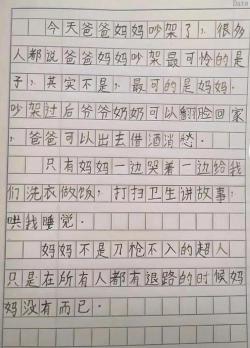 Date
今天爸爸妈妈吵架了,很多
人都说爸爸妈妈吵架最可怜的是
子,其实不是,最可的是妈妈.
吵架过后爷爷奶奶可以翻脸回家
,爸爸可以出去借酒消愁.
只有妈妈一边哭着一边给我
们洗衣做饭,打扫卫生讲故事,
哄我睡觉.
妈妈不是刀枪不入的超人
只是在所有人都有退路的时候妈
妈没有而已.